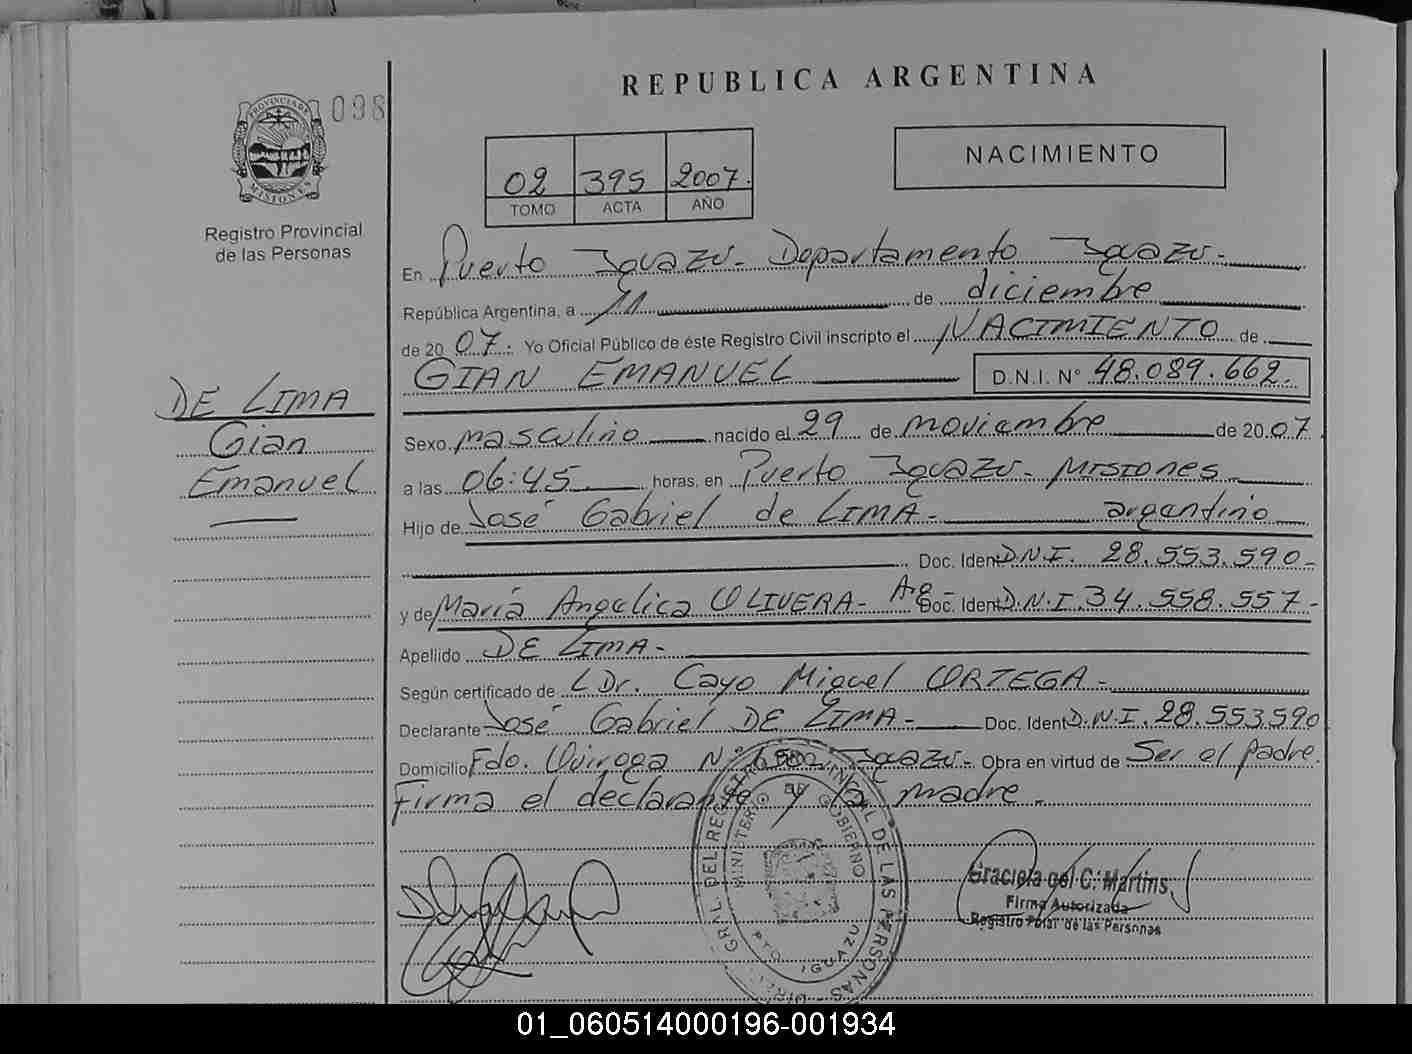 REPUBLICA ARGENTINA
PROVINCIA DE
MISIONES
098
Registro Provincial
de las Personas
02 395 2007.
TOMO ACTA AÑO
NACIMIENTO
En Puerto Iguazú - Departamento Iguazú -
República Argentina, a 11 de diciembre
de 20 07. Yo Oficial Público de éste Registro Civil inscripto el NACIMIENTO de
GIAN EMANUEL D.N.I. N° 48.089.662.
DE LIMA
Gian
Emanuel
Sexo masculino nacido el 29 de noviembre de 20 07
a las 06:45 horas, en Puerto Iguazú - MISIONES
Hijo de José Gabriel de LIMA - argentino
Doc. Ident D.N.I. 28.553.590-
y de María Angelica OLIVERA - Arg - Doc. Ident D.N.I. 34.558.557-
Apellido DE LIMA -
Según certificado de L Dr. Cayo Miguel ORTEGA -
Declarante José Gabriel DE LIMA - Doc. Ident D.N.I. 28.553590
Domicilio Fdo. Quiroga N° Iguazú - Obra en virtud de Ser el padre.
Firma el declarante y la madre -
GRAL DEL REGISTRO PROVINCIAL DE LAS PERSONAS
MINISTERIO DE GOBIERNO
PTO. IGUAZU
Graciela del C. Martins
Firma Autorizada
Registro Pcial de las Personas
01_060514000196-001934